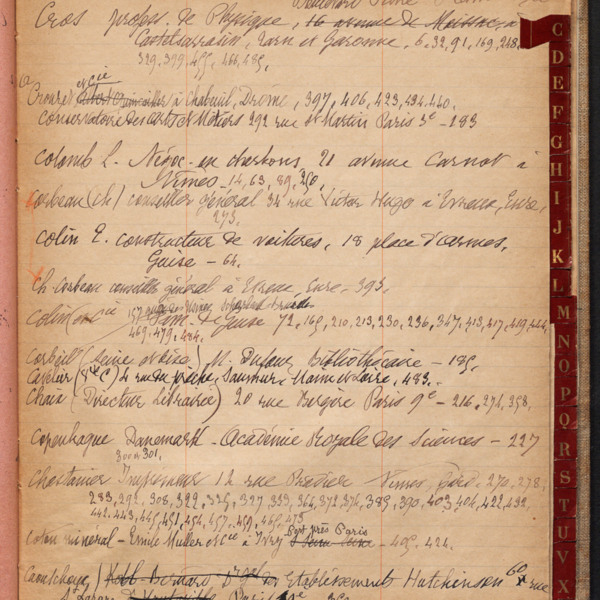 Cros profess. de Physique, 16 avenue de
Castelsarrasin, Tarn et Garonne, 6. 32, 91, 169, 248.
329, 399, 455, 466, 485.
et Cie
Crouzet à Chabeuil, Drôme, 397, 406, 423, 434, 440.
Conservatoire des Arts et Métiers 292 rue St Martin Paris 3e - 183
Colomb L. Négoc. en charbons, 21 avenue Carnot à
Nîmes - 14, 63, 89, 250,
Corbeau (Ch) conseiller général 34 rue Victor Hugo à Evreux, Eure,
273.
Colin E. constructeur de voitures, 18 place d'armes,
Guise - 64.
Ch. Corbeau conseiller général à Evreux, Eure - 393.
157
Colin & Cie Guise 72, 165, 210, 213, 230, 236, 347, 413, 417, 419, 444,
469, 479, 484.
Corbeil (Seine et Oise) M. Dufour Bibliothécaire - 185.
Cavelier (Vve C) 4 rue du prêche, Saumur, Maine et Loire, 483.
Chaix (Directeur Librairie) 20 rue Bergère Paris 9e - 216, 274, 358.
Copenhague Danemark - Académie Royale des Sciences - 227
300 et 301.
Chastanier Imprimeur 12 rue Pradier Nimes, Gard, 270, 278,
283, 292, 308, 322, 325, 327, 353, 364, 372, 376, 385, 390, 403, 404, 422, 432,
442, 443, 445, 451, 454, 457, 459, 465, 475
Port près Paris
Coton minéral - Emile Muller et Cie à Ivry - 405, 424.
60
Caoutchouc / Etablissements Hutchinson rue
Paris
C
D
E
F
G
H
I
J
K
L
M
N
O
P
Q
R
S
T
U
V
X